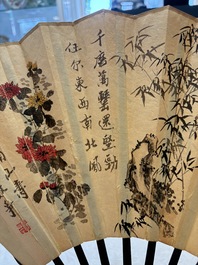 千磨萬擊還堅勁
任尔東西南北風